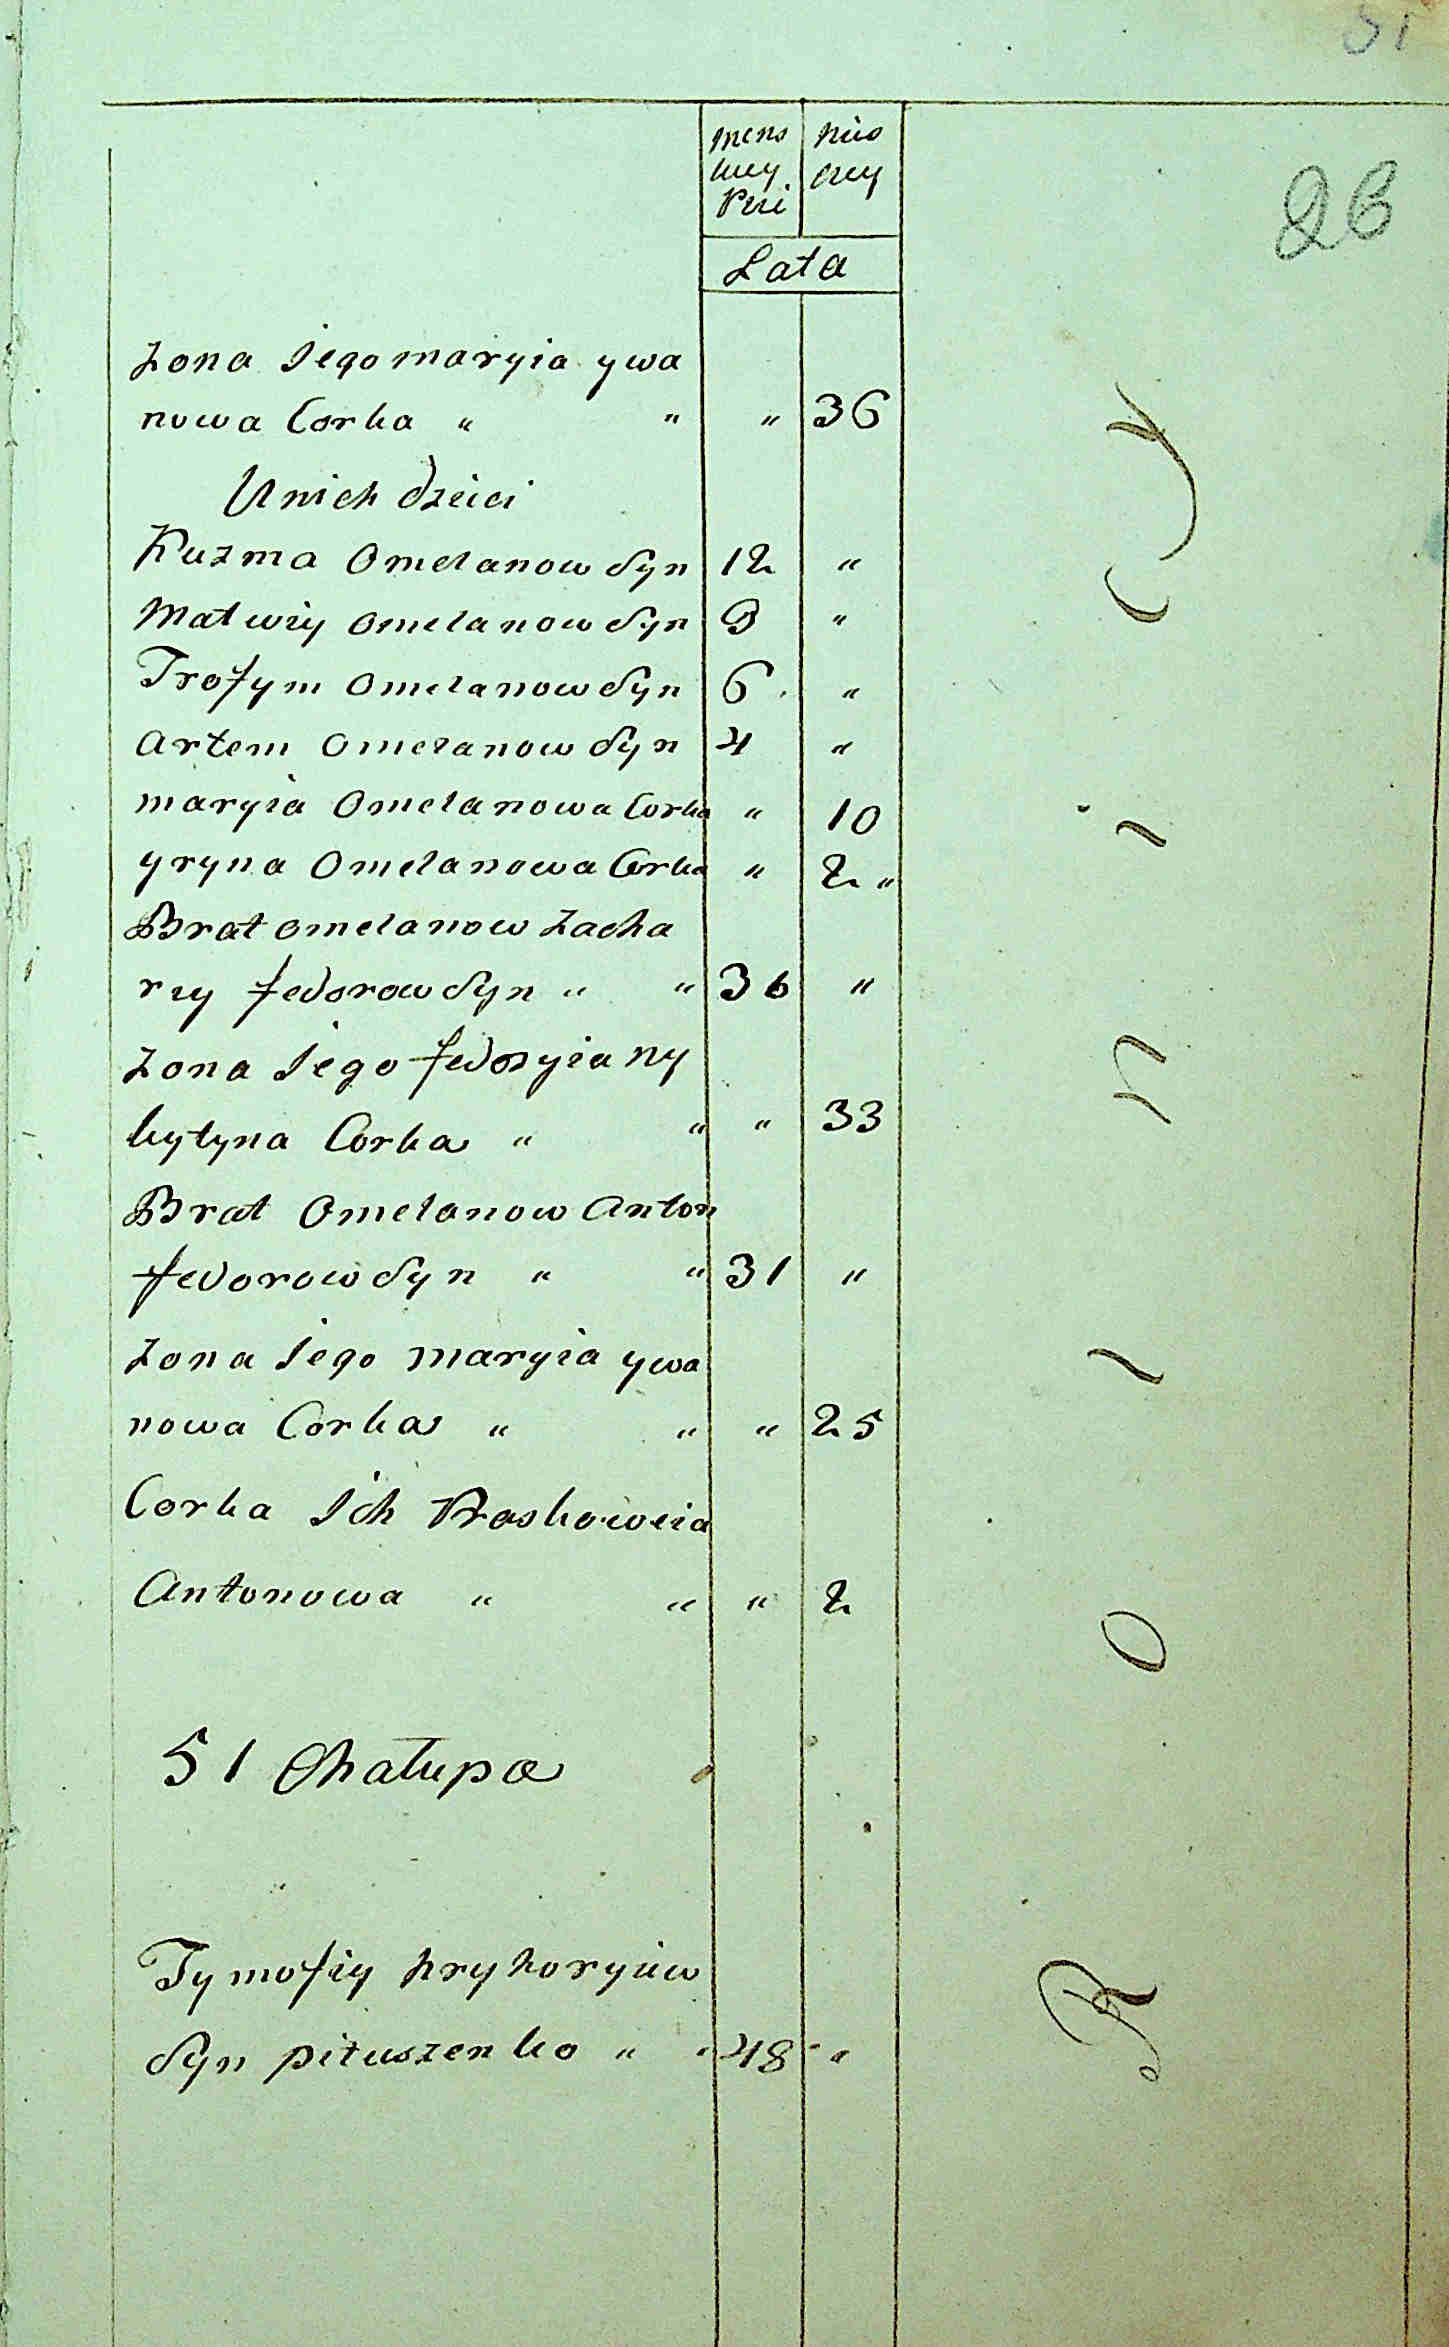 mens
kiey
Płci
nies
ciey
Lata
26
Zona Jego maryia ywa
nowa Corka " " " 36
U nich dzieci
Kuzma Omelanow Syn 12 "
Matwiy Omelanow Syn 9 "
Trofym Omelanow Syn 6 "
Artem Omelanow Syn 4 "
maryia Omelanowa Corka " 10
yryna Omelanowa Corka " 2 "
Brat Omelanow Zacha
riy fedorow Syn " " 36 "
Zona Jego fedosyia ny
kytyna Corka " " " 33
Brat Omelanow Anton
fedorow Syn " " 31 "
Zona Jego maryia ywa
nowa Corka " " " 25
Corka Ich Praskoweia
Antonowa " " " 2
51 Chałupa
Tymofiy hryhoryiew
Syn pituszenko " " 48 "
Rolnicy